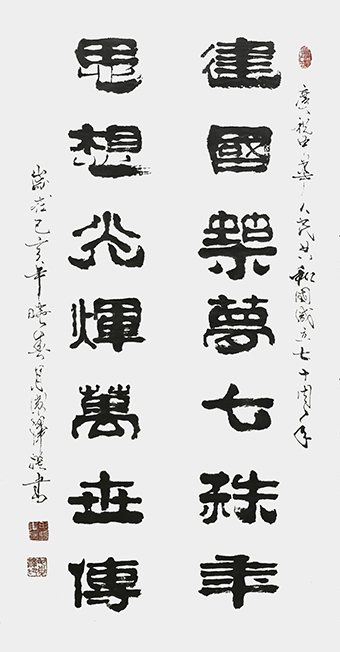 慶祝中華人民共和國成立七十周年
建國築夢七秩年
思想光輝萬世傳
歲在己亥年 春月 書